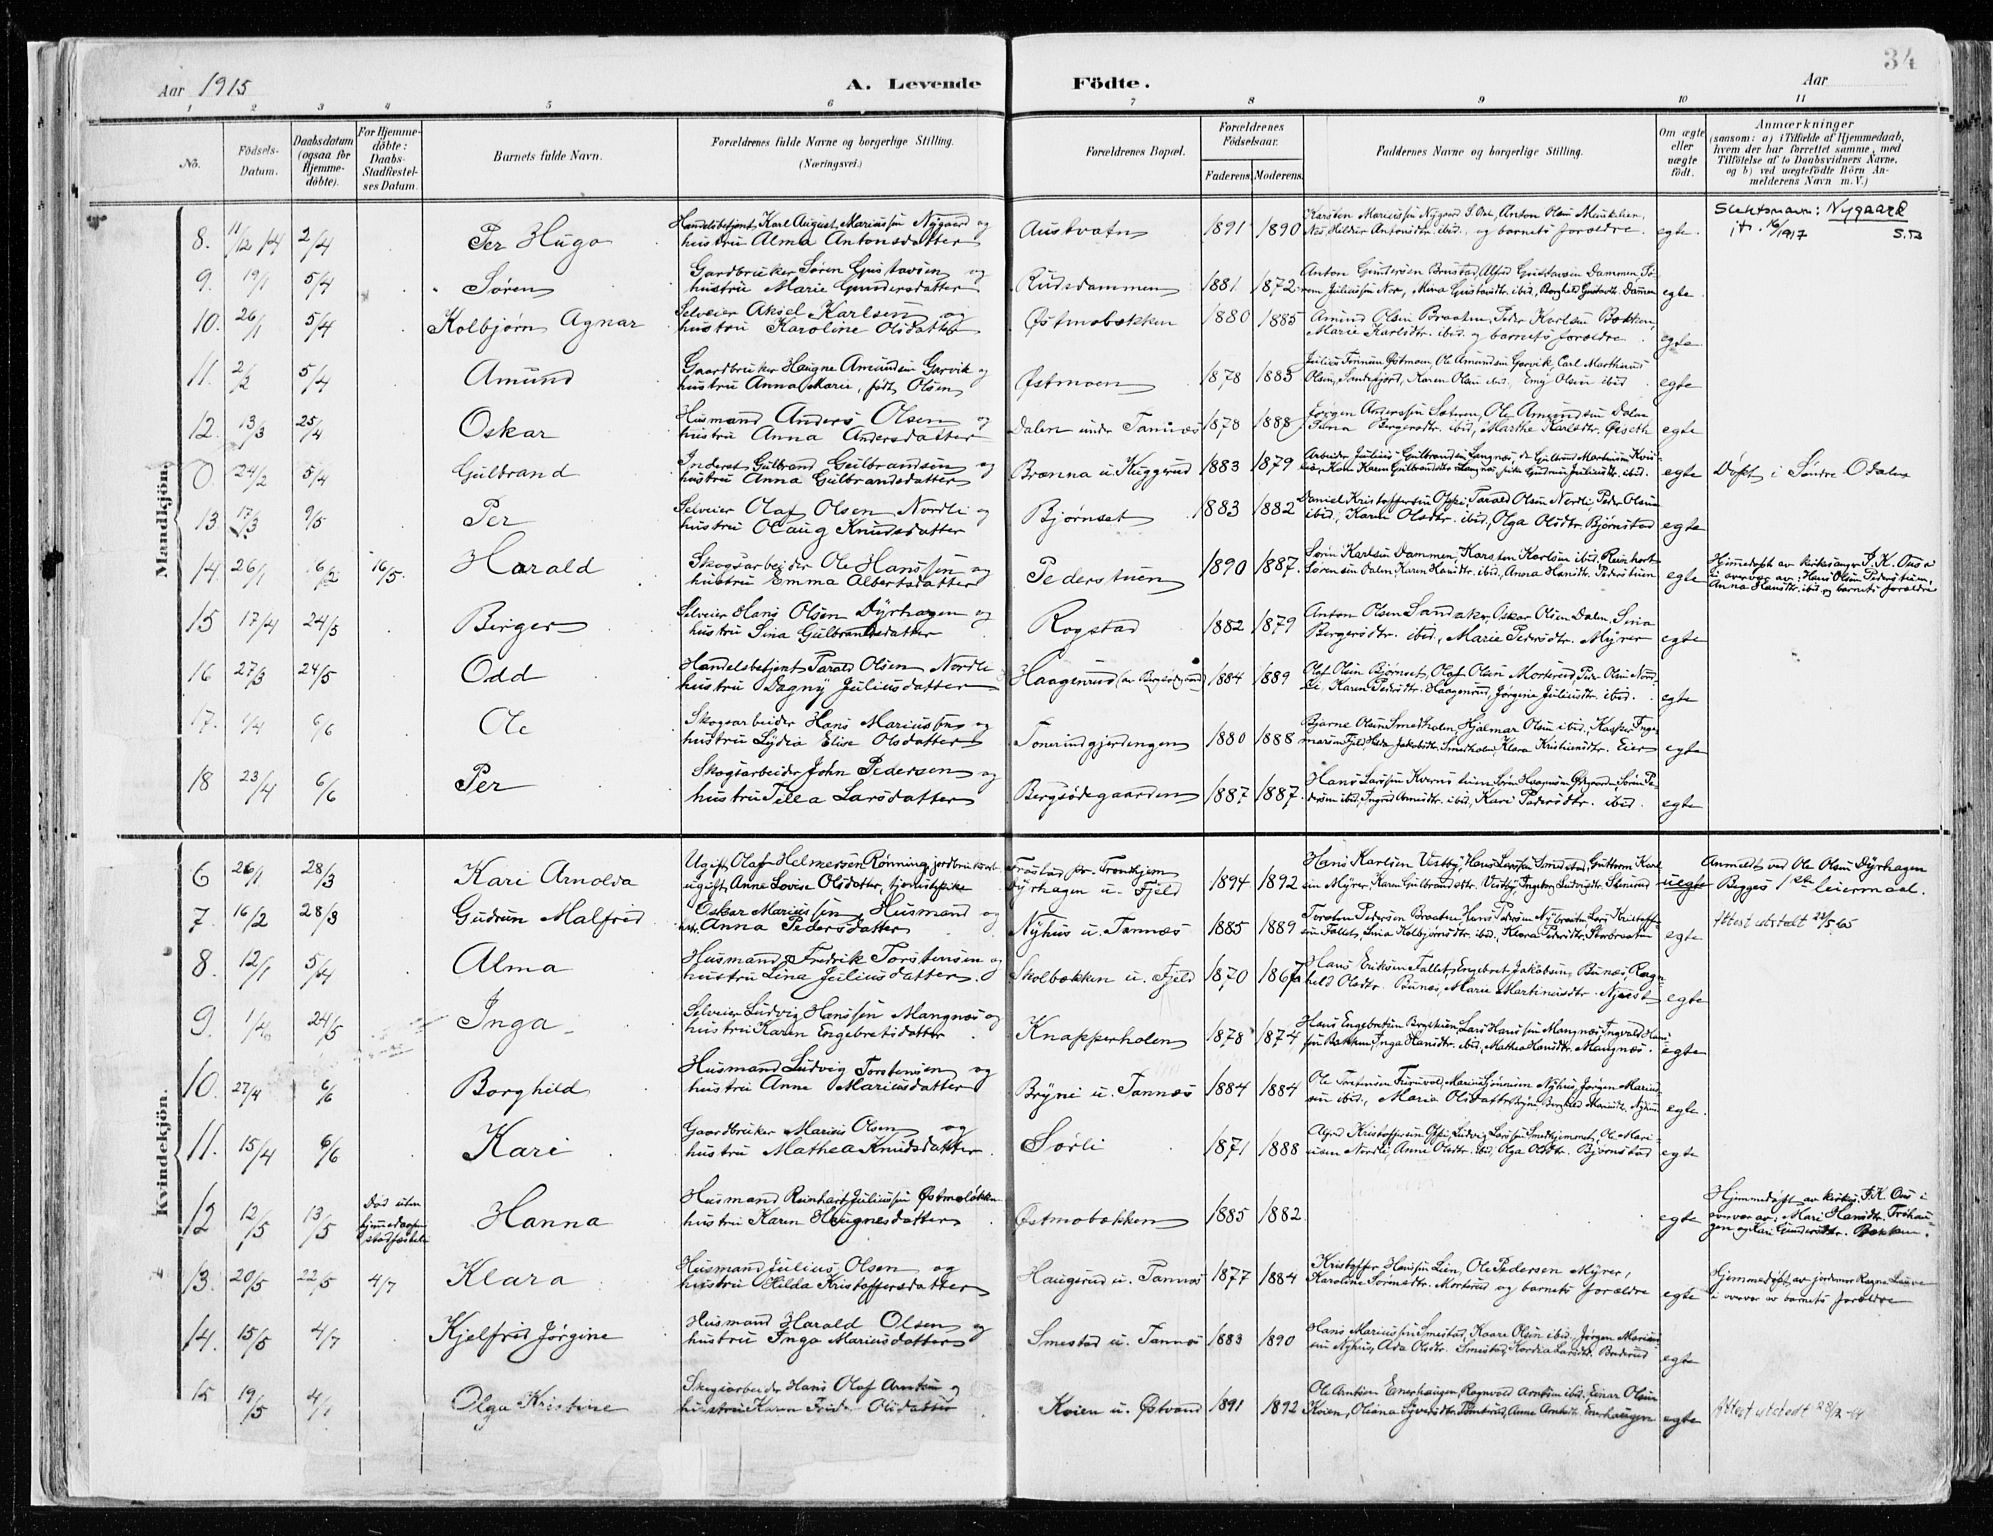 34
Aar 1915
A. Levende Födte.
Aar
1 2 3 4 5 6 7 8 9 10 11
No.
Födsels-Datum.
Daabsdatum (ogsaa for Hjemme-döbte).
For Hjemme-döbte: Daabs-Stadfæstel-ses Datum.
Barnets fulde Navn.
Forældrenes fulde Navne og borgerlige Stilling.
(Næringsvei.)
Forældrenes Bopæl.
Forældrenes Födselsaar.
Faderens. Moderens.
Faddernes Navne og borgerlige Stilling.
Om ægte eller uægte födt.
Anmærkninger
(saasom: a) i Tilfælde af Hjemmedaab,
hvem der har forrettet samme, med
Tilföielse af to Daabsvidners Navne,
og b) ved uægtefödte Börn An-
melderens Navn m. V.)
Mandkjön.
8. 11/2 14 2/4 Per Hugo Handelsbetjent Karl August Mariussen Nygaard og
hustru Alma Antonsdatter Austvatn 1891 1890 Karsten Mariussen Nygaard S. Odal, Anton Olsen
Nes, Hildur Antonsdtr. ibid. og barnets forældre. egte. Slektsnavn: Nygaard
16/1917 S.B
9. 19/1 5/4 Søren Gardbruker Søren Gustavsen og
hustru Marie Gundersdatter Rudsdammen 1881 1872 Anton Gundersen Brustad, Alfred Gustavsen Dammen, Sø-
ren Juliussen Nor, Mina Gustavsdtr. ibid, Borghild Gustavsdtr. Dammen egte
10. 26/1 5/4 Kolbjørn Agnar Selveier Aksel Karlsen og
hustru Karoline Olsdatter Østmobækken 1880 1885 Amund Olsen Braaten, Peder Karlsen Bækken,
Marie Karlsdtr. ibid. og barnets forældre. egte
11. 2/2 5/4 Amund Gaardbruker Haugne Amundsen Garvik og
hustru Anna Marie, født Olsen Østmoen 1878 1883 Julius Finnsen Østmoen, Ole Amundsen Garvik, Carl Marthinius
Olsen, Sandefjord, Karen Olsen ibid., Emy Olsen ibid egte
12. 13/3 25/4 Oskar Husmand Anders Olsen og
hustru Anna Andersdatter Dalen under Tannæs 1878 1888 Jørgen Anderssen Sætren, Ole Amundsen Dalen
Bergersdtr. ibid, Marthe Karlsdtr. Øiseth egte
0. 24/2 5/4 Gulbrand Inderst Gulbrand Gulbrandsen og
hustru Anna Gulbrandsdatter Brænna u. Kuggerud 1883 1879 Arbeider Julius Gulbrandsen Langnæs
Karen Gulbrandsdtr. Langnæs, pike Gudrun Juliusdtr. ibid. egte Døpt i Søndre Odalen
13. 17/3 9/5 Per Selveier Olaf Olsen Nordli og
hustru Olaug Knudsdatter Bjørnset 1883 1882 Daniel Kristoffersen Opsi, Tarald Olsen Nordli, Peder Olsen
ibid, Karen Olsdtr. ibid, Olga Olsdtr. Bjørnstad egte
14. 26/1 6/2 16/5 Harald Skogsarbeider Ole Hanssen og
hustru Emma Albertsdatter Pederstuen 1890 1887 Søren Karlsen Dammen, Karsten Karlsen ibid, Reinhart
Sørensen Dalen, Karen Hansdtr. ibid, Anna Hansdtr. Pederstuen egte Hjemmedøpt av kirkesanger J. K. Ous
i overvær av: Hans Olsen Pederstuen,
Anna Hansdtr. ibid og barnets forældre
15 17/4 24/5 Birger Selveier Hans Olsen Dyrhagen og
hustru Sina Gulbrandsdatter Rogstad 1882 1879 Anton Olsen Sandaker, Oskar Olsen Dalen, Sina
Bergersdtr. ibid., Marie Pedersdtr. Myrer egte
16 27/3 24/5 Odd Handelsbetjent Tarald Olsen Nordli
hustru Dagny Juliusdatter Haagenrud (av Bergsødegaard) 1884 1889 Olaf Olsen Bjørnset, Olaf Olsen Morterud, Peder Olsen Nord-
li, Karen Pedersdtr. Haagenrud, Jørgine Juliusdtr. ibid. egte
17. 1/4 6/6 Ole Skogsarbeider Hans Mariussen og
hustru Lydia Elise Olsdatter Tonerudgjerdingen 1880 1888 Bjarne Olsen Smedholen, Hjalmar Olsen ibid, Kasper Inge-
marsen Fjeld, Hilda Jakobsdtr. Smedholen, Klara Kristiansdtr. Eier egte
18 23/4 6/6 Per Skogsarbeider John Pedersen og
hustru Tilla Larsdatter Bergsødegaarden 1887 1887 Hans Larssen Kvernstuen, Søren Pe-
dersen ibid, Ingrid Arnesdtr. ibid, Kari Pedersdtr. ibid. egte
Kvindekjön.
6 26/1 28/3 Kari Arnolda Ugift Olaf Helmersen Rønning, jordbruker
ugift Anne Lovise Olsdatter, tjenestepike Frostad pr. Trondhjem
Dyrhagen u. Fjeld 1894 1892 Hans Karlsen Vestby, Hans Larssen Smestad, Guttorm Karl-
sen Myrer, Karen Gulbrandsdtr. Vestby, Ingeborg Ludvigsdtr. Stenerud uegte Anmeldt ved Ole Olsen Dyrhagen
Begges 1ste leiermaal.
7. 16/2 28/3 Gudrun Malfrid Oskar Mariussen, Husmand og
hst. Anna Pedersdatter Nyhus u. Tannæs 1885 1889 Torsten Pedersen Braaten, Hans Pedersen Nybraaten, Lars Kristoffer-
sen Fallet, Lina Kolbjørnsdtr. ibid., Klara Pedersdtr. Storbraaten egte Attest utstedt 28/5 65
8. 12/1 5/4 Alma Husmand Fredrik Torstensen og
hustru Lina Juliusdatter Skolbækken u. Fjeld 1870 1867 Hans Eriksen Fallet, Engebret Jakobsen Bunæs, Ragn-
hild Olsdtr. Bunæs, Marie Martiniusdtr. egte
9. 1/4 24/5 Inga Selveier Ludvig Hanssen Mangnæs og
hustru Karen Engebretsdatter Knapperholen 1878 1874 Hans Engebretsen, Lars Hanssen Mangnæs, Ingvald Han-
sen Bakken, Inga Hansdtr. ibid, Mathea Hansdtr. Mangnæs. egte
10. 27/4 6/6 Borghild Husmand Ludvig Torstensen og
hustru Anne Mariusdatter Bryni u. Tannæs 1884 1884 Ole Torstensen Furuvold, Marius Jonassen Nyhus, Jørgen Marius-
sen ibid., Maria Olsdatter Bryni, Borghild Mariusdtr. Nyhus egte.
11. 15/4 6/6 Kari Gaardbruker Marius Olsen og
hustru Mathea Knudsdatter Sørli 1871 1888 Alfred Kristoffersen Opsi, Ludvig Larssen Smedhjemmet, Ole Mari-
ussen Nordli, Anne Olsdtr. ibid, Olga Olsdtr. Bjørnstad egte
12 12/5 13/5 Død uten hjemmedaapen stadfæstelse Hanna Husmand Reinhart Juliussen Østmobækken
hustru Karen Haugnesdatter Østmobækken 1885 1882 egte Hjemmedøpt av kirkes. J. K. Ous i
overvær av: Mari Hansdtr. Frøhau-
gen og Kari Gundersdtr. Bakken.
13. 20/5 22/5 4/7 Klara Husmand Julius Olsen og
hustru Hilda Kristoffersdatter Haugerud u. Tannæs 1877 1884 Kristoffer Hanssen Lien, Ole Pedersen Myrer,
Karoline Sørensdtr. Morterud og barnets forældre egte Hjemmedøpt av jordmor Ragna
i overvær av barnets forældre
14. 15/5 4/7 Kjelfrid Jørgine Husmand Harald Olsen og
hustru Inga Mariusdatter Smestad u. Tannæs 1883 1890 Hans Mariussen Smestad, Kaare Olsen ibid., Jørgen Marius-
sen Nyhus, Ada Olsdtr. Smestad, Kordia Larsdtr. Braderud egte
15 19/5 4/7 Olga Kristine Skogsarbeider Hans Olaf Arntsen og
hustru Karen Olsdatter Kvien u. Østvand 1891 1892 Ole Arntsen Enerhaugen, Ragnvald Arntsen ibid, Einar Olsen
Kvien, Oliana Syversdtr. Tomterud, Anne Arntsdtr. Enerhaugen egte Attest utstedt 28/2-64